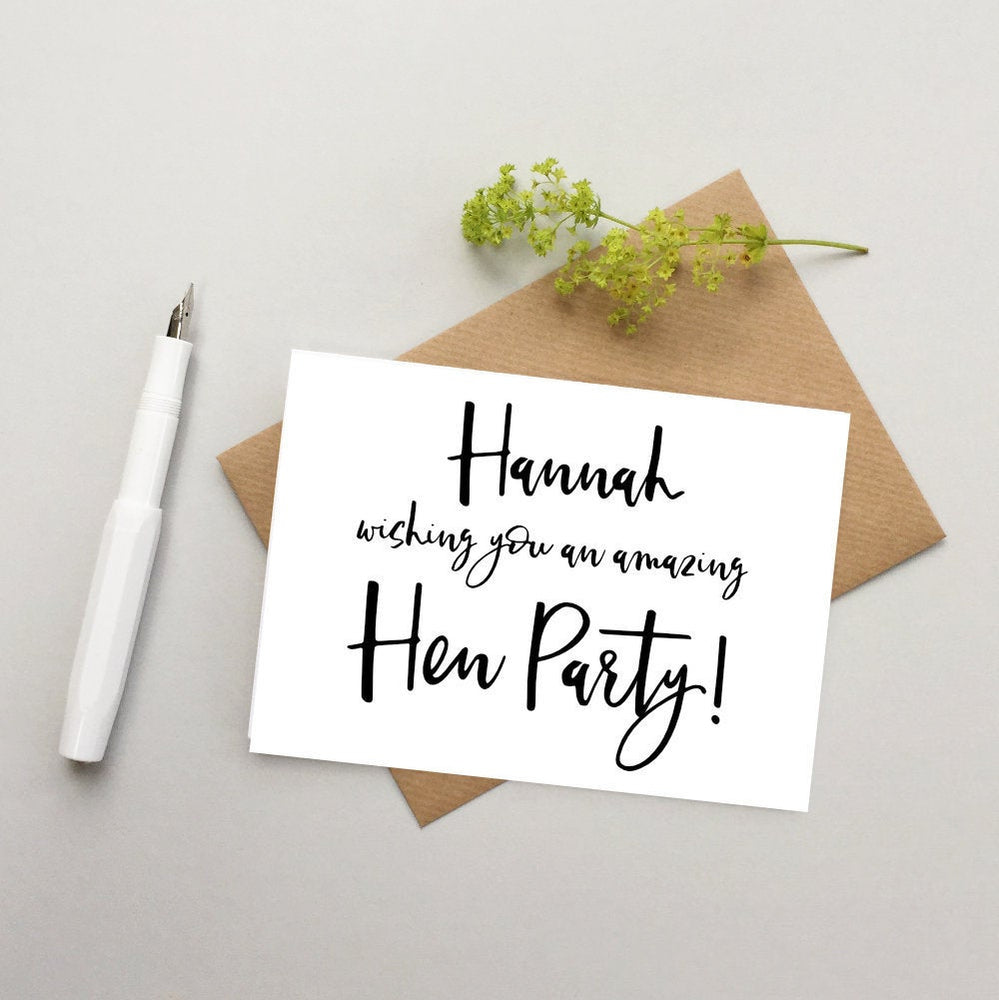 Hannah
wishing you an amazing
Hen Party!